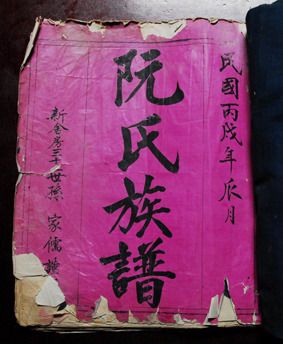 民國丙戌年辰月
阮氏族譜
新會房三十世孫 家儒